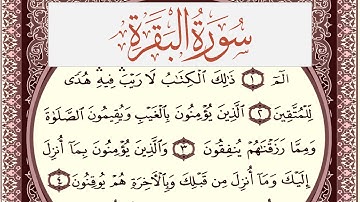 سُورَةُ البَقَرَةِ
الٓمٓ ١ ذَٰلِكَ ٱلْكِتَٰبُ لَا رَيْبَ ۛ فِيهِ ۛ هُدًى
لِّلْمُتَّقِينَ ٢ ٱلَّذِينَ يُؤْمِنُونَ بِٱلْغَيْبِ وَيُقِيمُونَ ٱلصَّلَوٰةَ
وَمِمَّا رَزَقْنَٰهُمْ يُنفِقُونَ ٣ وَٱلَّذِينَ يُؤْمِنُونَ بِمَآ أُنزِلَ
إِلَيْكَ وَمَآ أُنزِلَ مِن قَبْلِكَ وَبِٱلْءَاخِرَةِ هُمْ يُوقِنُونَ ٤